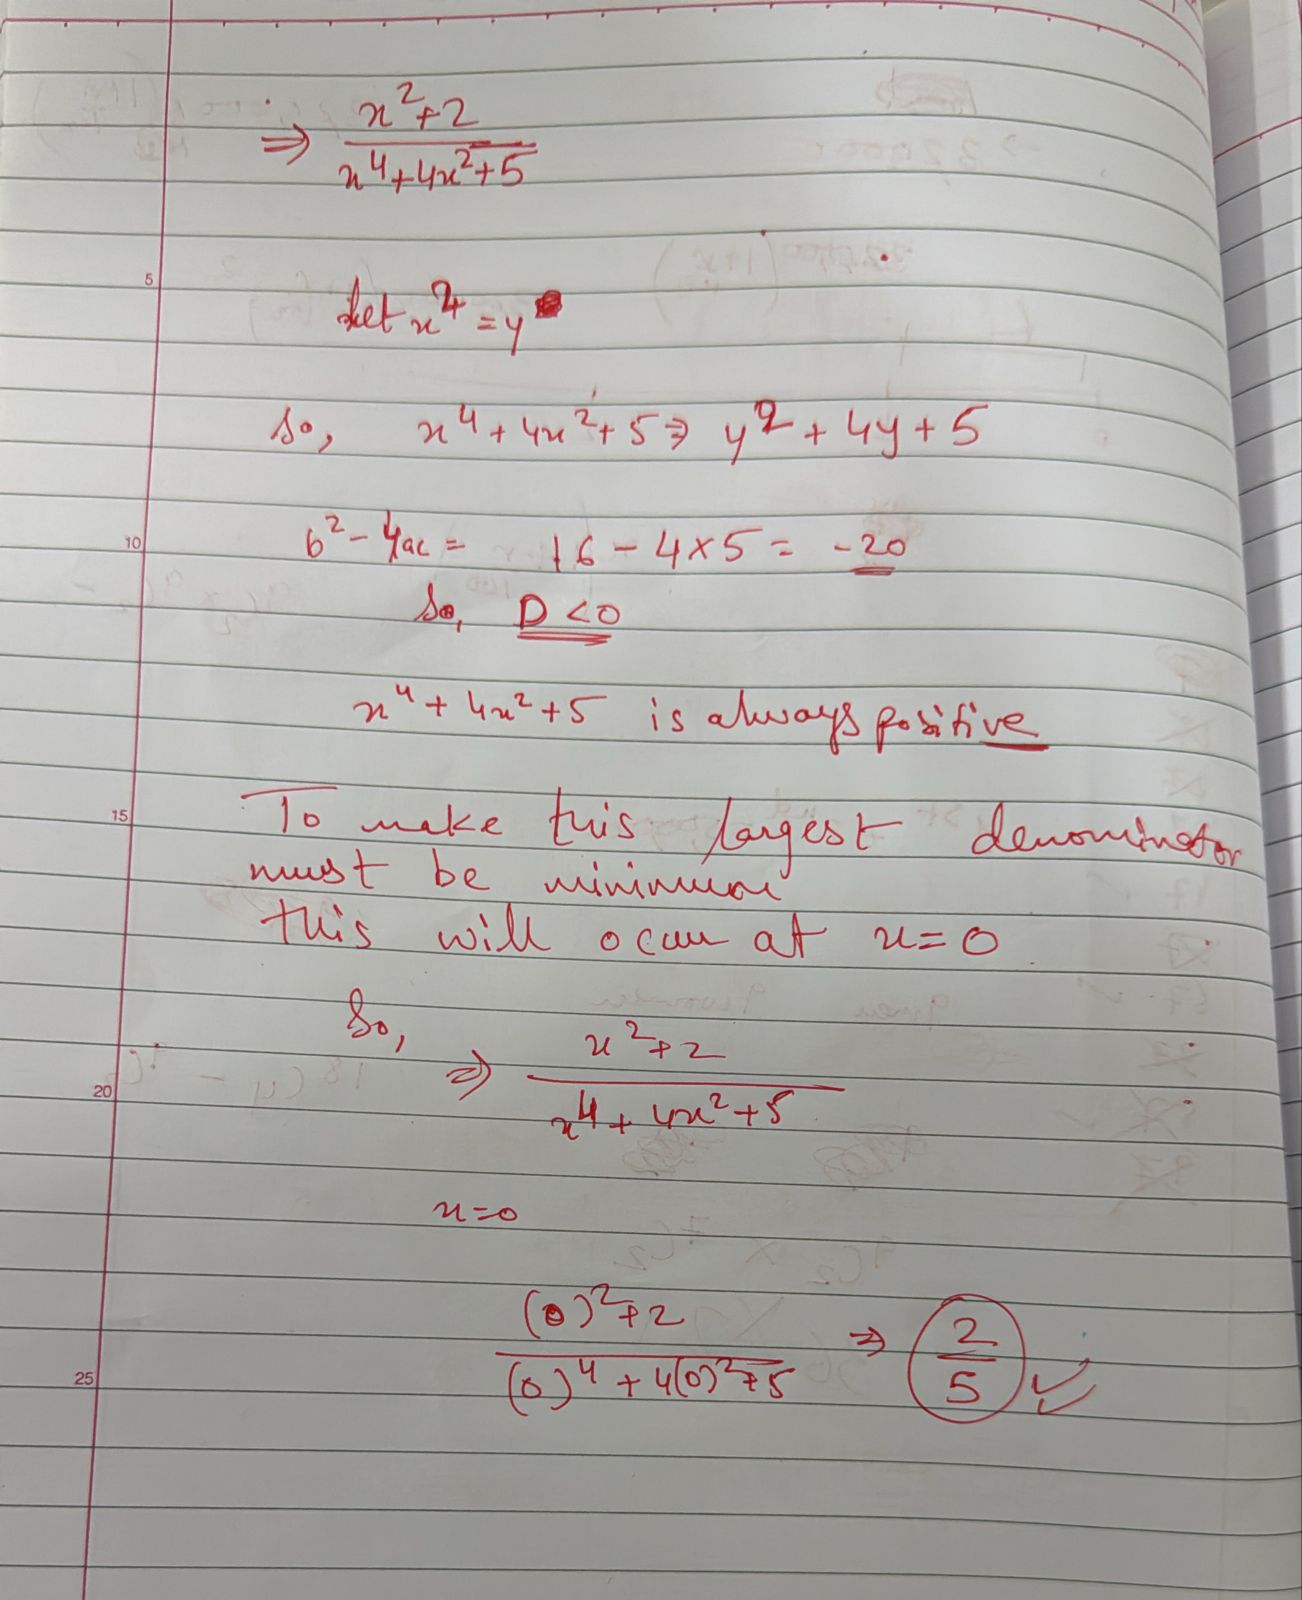 ⇒ x²+2
x⁴+4x²+5
5
Let x² = y
So, x⁴+4x²+5 ⇒ y² + 4y + 5
10
b² - 4ac = 16 - 4×5 = -20
So, D < 0
x⁴ + 4x² + 5 is always positive
15
To make this largest denominator
must be minimum
this will occur at x=0
So,
⇒ x²+2
x⁴ + 4x² + 5
20
x=0
(0)²+2 ⇒ 2
(0)⁴ + 4(0)²+5 5
25